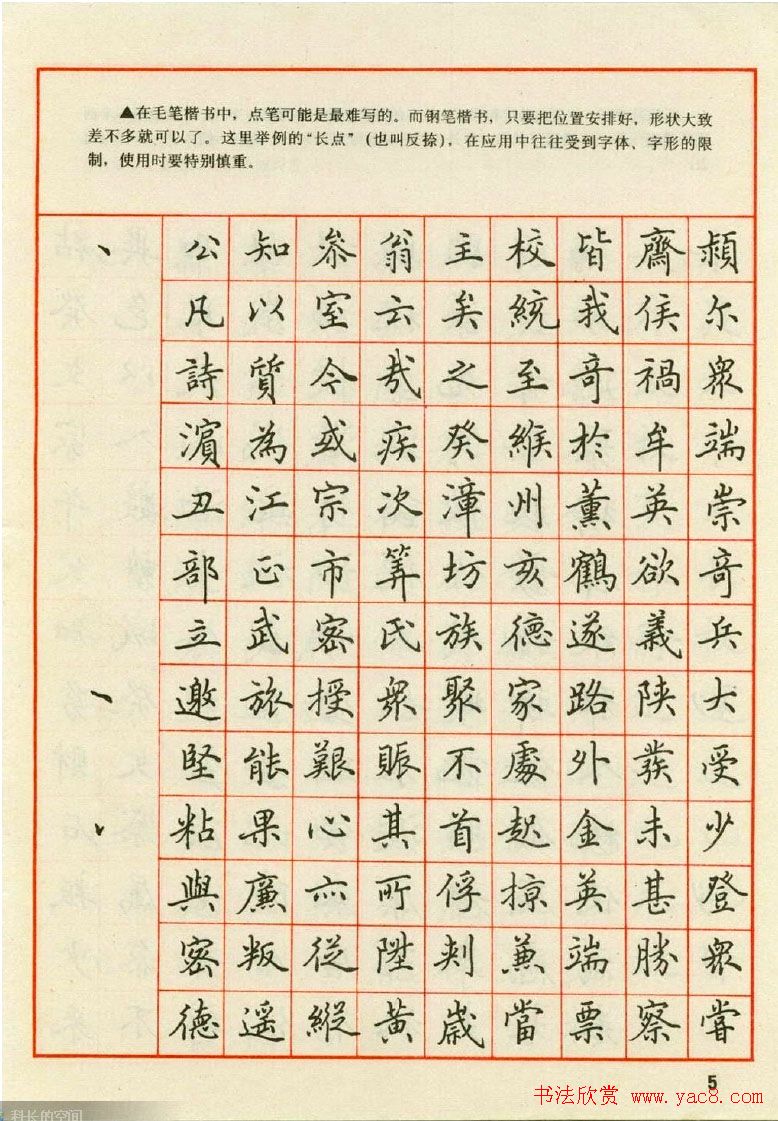 ▲在毛笔楷书中，点笔可能是最难写的。而钢笔楷书，只要把位置安排好，形状大致
差不多就可以了。这里举例的“长点”（也叫反捺），在应用中往往受到字体、字形的限
制，使用时要特别慎重。
公知参翁主校皆齋潁
凡以室云矣統我侯尔
詩質今哉之至奇禍眾
濱為或疾癸維於牟端
丑江宗次漳州薰英崇
部正市筭坊亥鶴欲奇
立武密氏族德遂義兵
邀旅授眾聚家路陕大
堅能艱賑不處外發受
粘果心其首起金未少
與廉亦所俘掠英甚登
密叛從陞刺兼端勝眾
德遥縱黄歲當票察嘗
5
书法欣赏 www.yac8.com
科长的空间